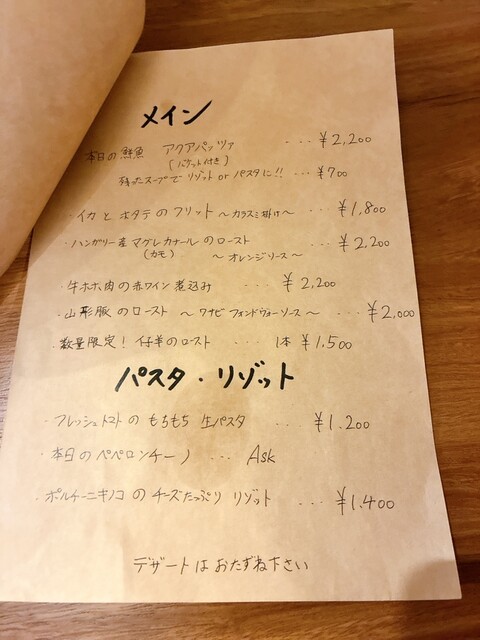 メイン
・本日の鮮魚 アクアパッツァ ... ¥2,200
(バケット付き)
残ったスープで リゾット or パスタに!! ... ¥700
・イカとホタテのフリット 〜カラスミ掛け〜 ... ¥1,800
・ハンガリー産マグレカナールのロースト ... ¥2,200
(カモ) 〜オレンジソース〜
・牛ホホ肉の赤ワイン煮込み ... ¥2,200
・山形豚のロースト 〜ワサビフォンドヴォーソース〜 ... ¥2,000
・数量限定! 仔羊のロースト ... 1本 ¥1,500
パスタ・リゾット
・フレッシュトマトの もちもち 生パスタ ... ¥1.200
・本日のペペロンチーノ ... Ask
・ポルチーニキノコの チーズたっぷり リゾット ... ¥1.400
デザートはおたずね下さい